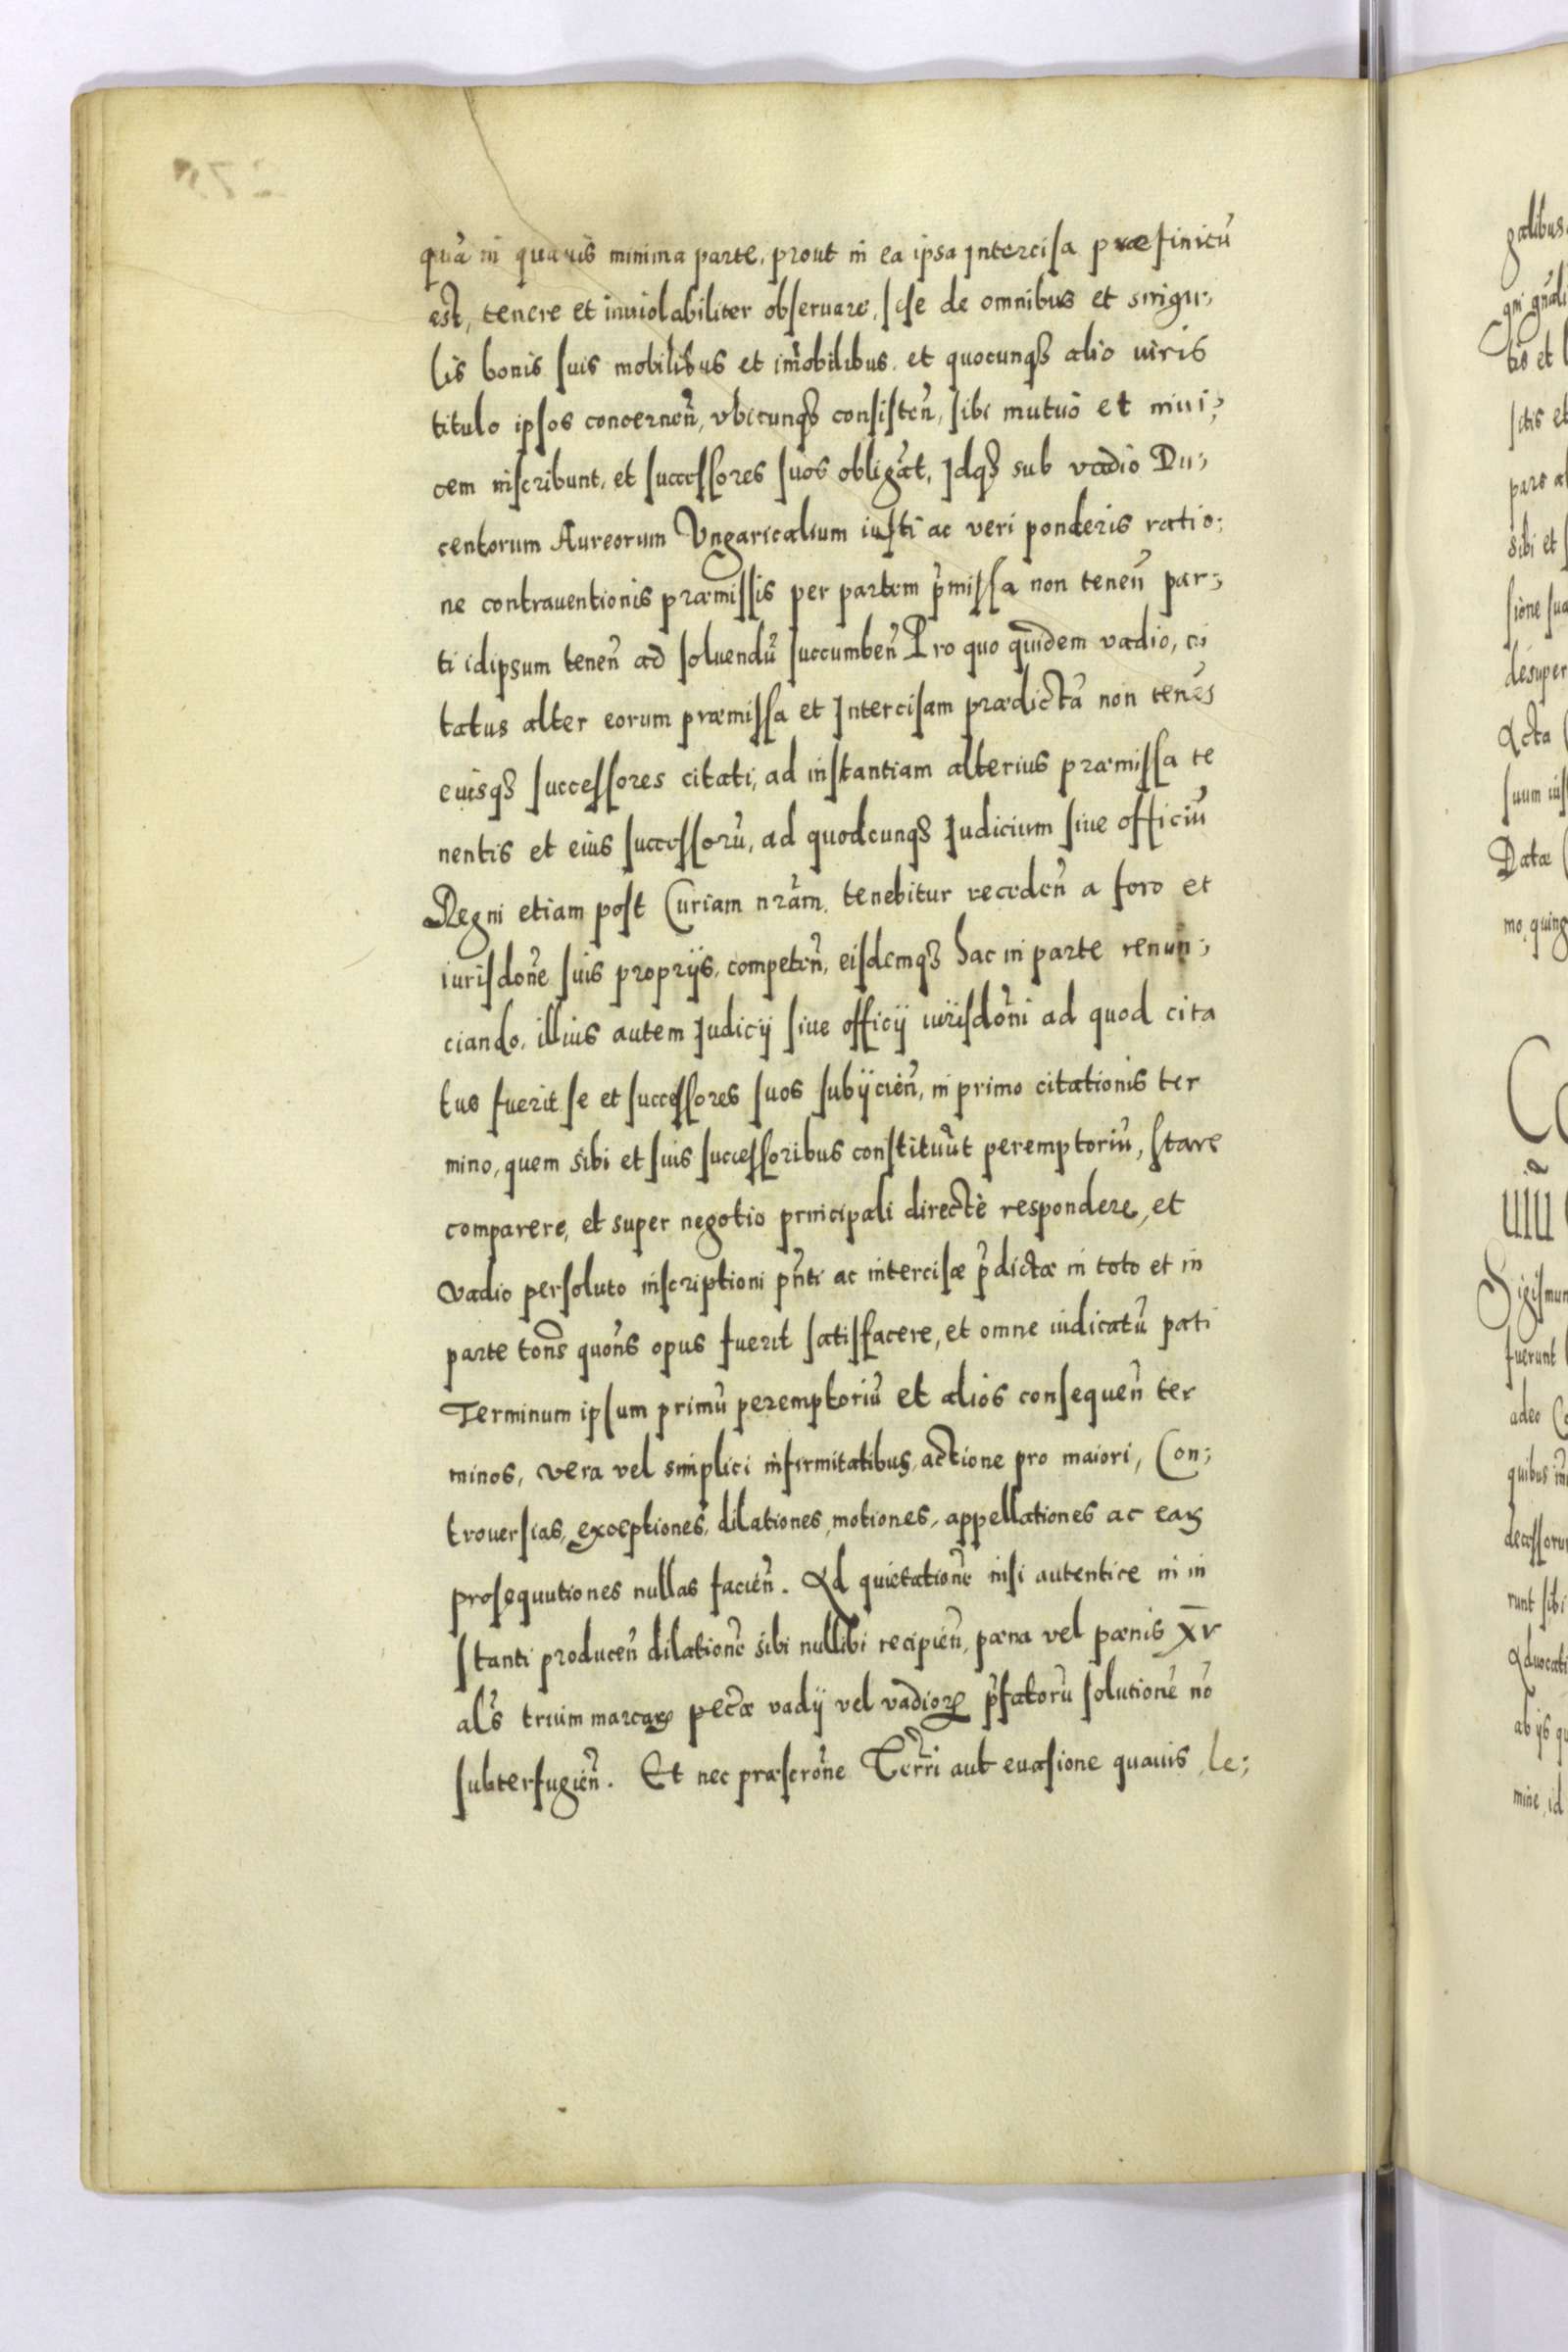 quā in quauis minima parte, prout in ea ipsa Intercisa præfinitū
est, tenere et inuiolabiliter obseruare, sese de omnibus et singu-
lis bonis suis mobilibus et im̄obilibus, et quocunqȝ alio iuris
titulo ipsos concernen̄, vbicunqȝ consisten̄, sibi mutuò et inui-
cem inscribunt, et successores suos obligāt, Idqȝ sub vadio Du-
centorum Aureorum Vngaricalium iusti ac veri ponderis ratio-
ne contrauentionis præmissis per partem p̄missa non tenen̄ par-
ti idipsum tenen̄ ad soluendū succumben̄ Pro quo quidem vadio, ci
tatus alter eorum præmissa et Intercisam prædictā non tenēs
eiusqȝ successores citati, ad instantiam alterius præmissa te
nentis et eius successorū, ad quodcunqȝ Iudicium siue officiū
Regni etiam post Curiam nrām, tenebitur receden̄ a foro et
iurisdōne suis proprijs, competen̄, eisdemqȝ hac in parte renun-
ciando, illius autem Iudicij siue officij iurisdōni ad quod cita
tus fuerit se et successores suos subijcien̄, in primo citationis ter
mino, quem sibi et suis successoribus constituūt peremptoriū, stare
comparere, et super negotio principali directè respondere, et
vadio persoluto inscriptioni pn̄ti ac intercisæ p̄dictæ in toto et in
parte ton̄s quon̄s opus fuerit satisfacere, et omne iudicatū pati
Terminum ipsum primū peremptoriū et alios consequen̄ ter
minos, vera vel simplici infirmitatibus, actione pro maiori, Con-
trouersias, exceptiones, dilationes, motiones, appellationes ac eaꝝ
prosequutiones nullas facien̄. Ad quietationē nisi autentice in in
stanti producen̄ dilationē sibi nullibi recipien̄, pæna vel pænis XV
al̄s trium marcaꝝ pec̄æ vadij vel vadioꝝ p̄fatorū solutionē nō
subterfugien̄. Et nec præscrōne Terr̄i aut euasione quauis le-